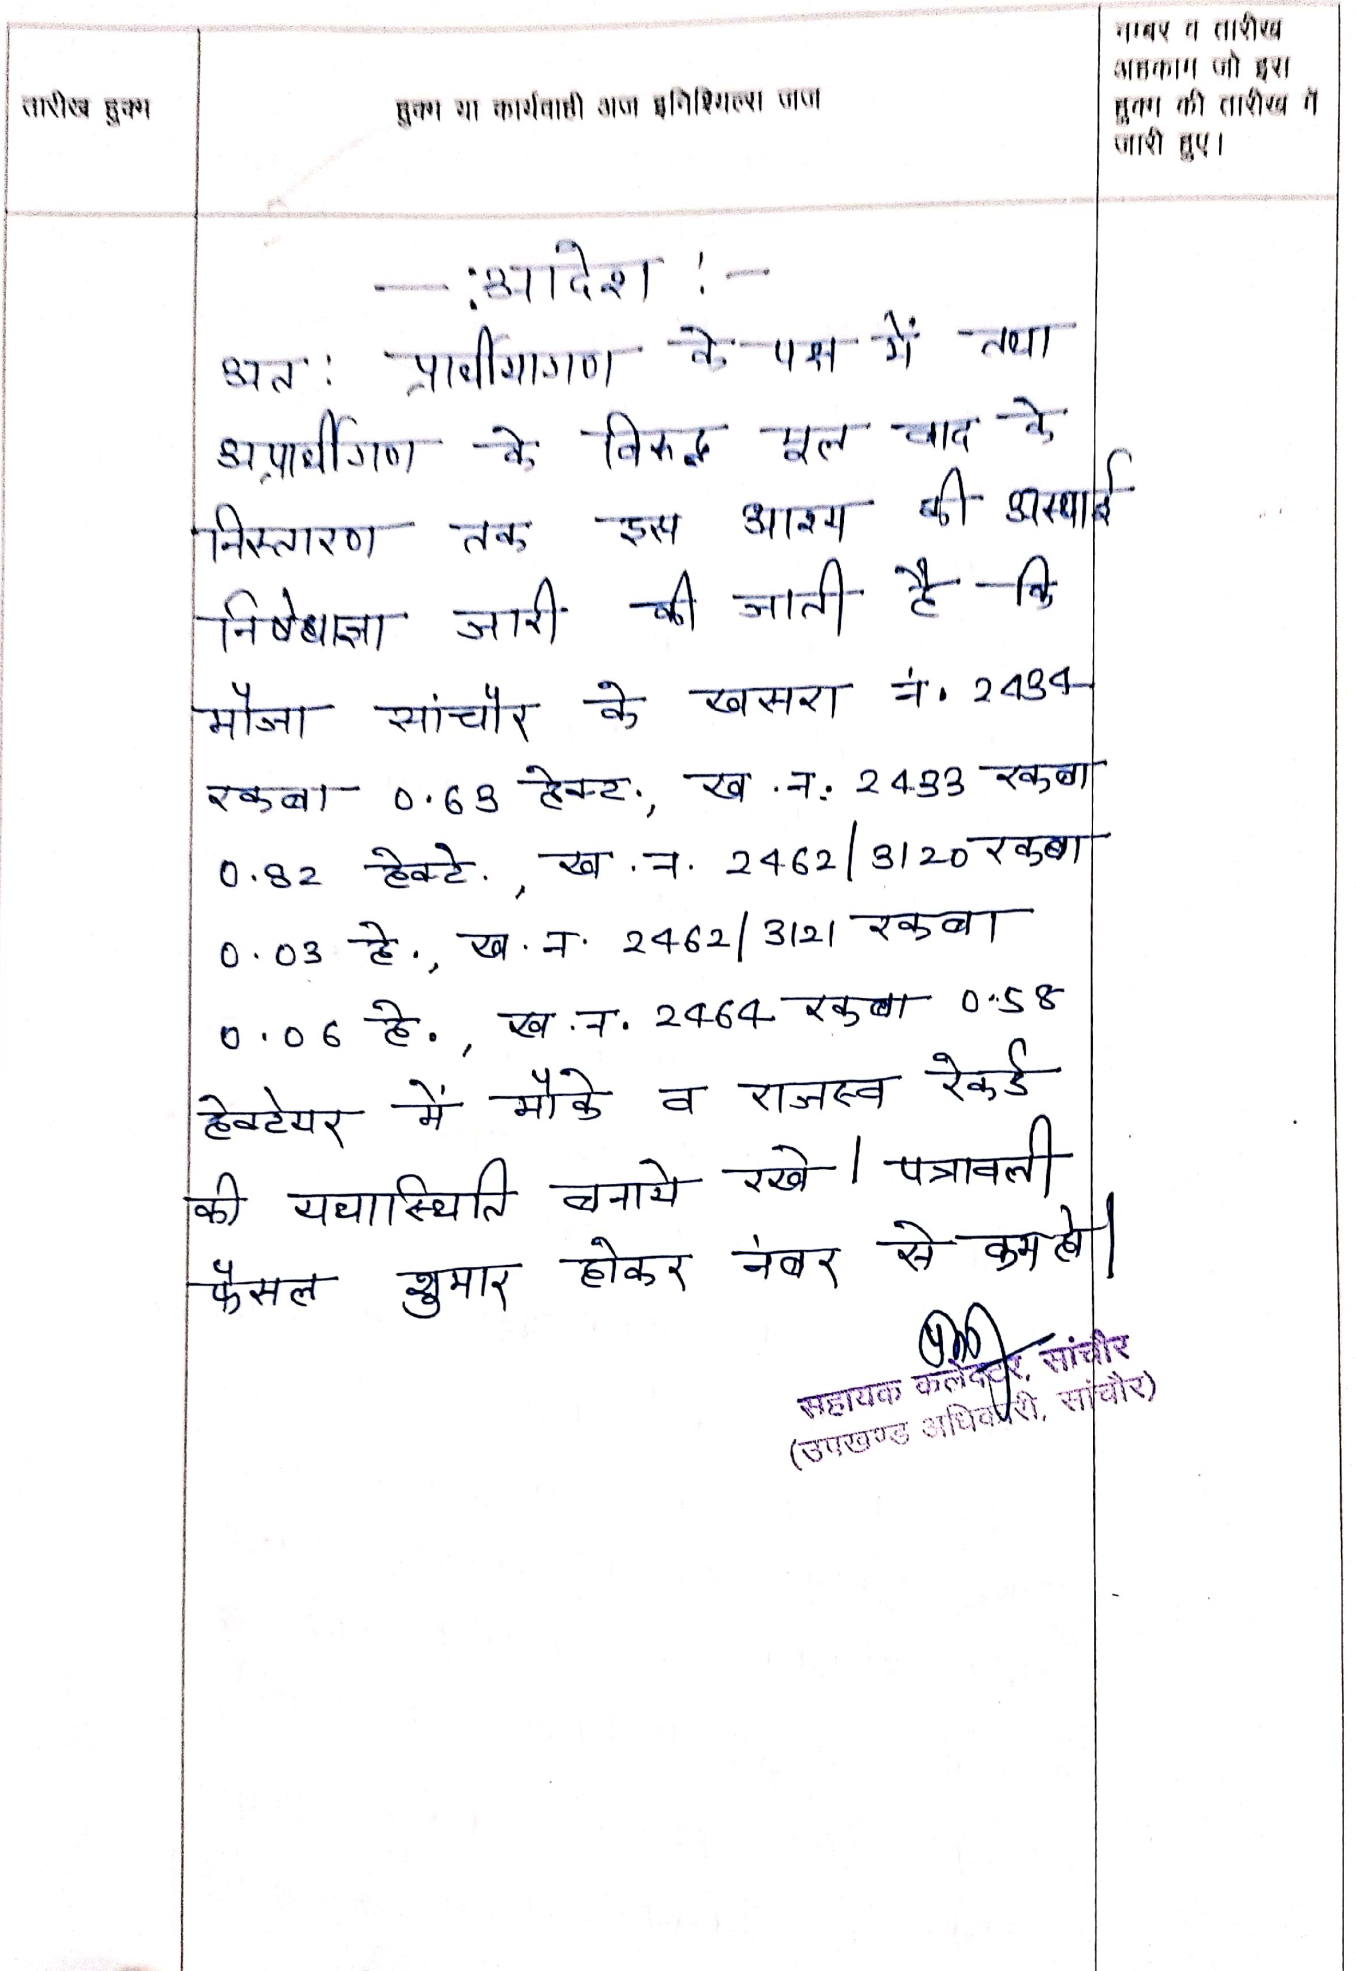 तारीख हुक्म
हुक्म या कार्यवाही अज इनिशियल्स जज
नम्बर व तारीख
अहकाम जो इस
हुक्म की तारीख में
जारी हुए।
—:आदेश:—
अत: प्रार्थीयागण के पक्ष में तथा
अप्रार्थीगण के विरुद्ध मूल वाद के
निस्तारण तक इस आशय की अस्थाई
निषेधाज्ञा जारी की जाती है कि
मौजा सांचौर के खसरा नं. 2434
रकबा 0.63 हेक्ट., ख.न. 2433 रकबा
0.82 हेक्टे., ख.न. 2462/3120 रकबा
0.03 हे., ख.न. 2462/3121 रकबा
0.06 हे., ख.न. 2464 रकबा 0.58
हेक्टेयर में मौके व राजस्व रेकर्ड
की यथास्थिति बनाये रखे। पत्रावली
फैसल शुमार होकर नंबर से कम हो।
सहायक कलेक्टर, सांचौर
(उपखण्ड अधिकारी, सांचौर)